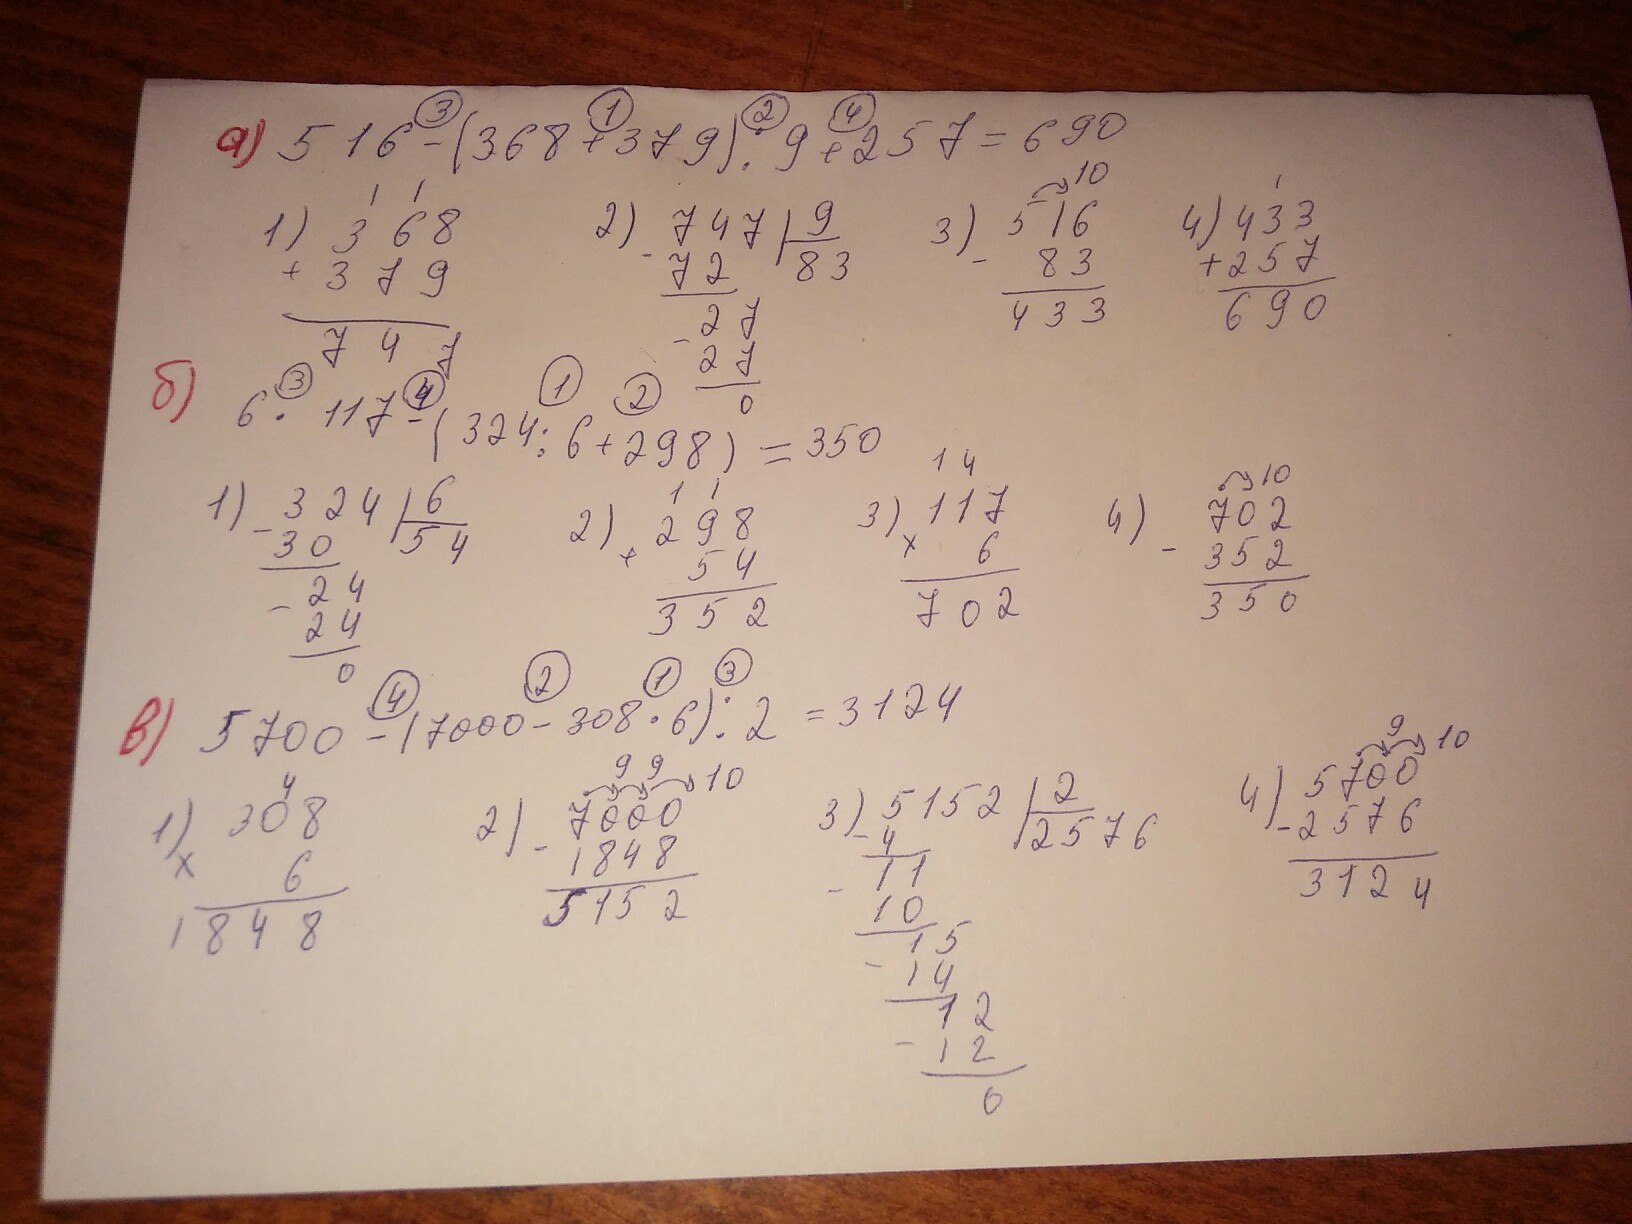 а) 516-(368+379):9+257=690
③ ① ② ④
1) 368 + 379 747
2) 747 | 9 83 - 72 - 27 27 0
3) 516 - 83 433 10
4) 433 + 257 690
б) 6·117-(324:6+298)=350
③ ④ ① ②
1) 324 | 6 54 - 30 - 24 24 0
2) 298 + 54 352 1 1
3) 117 × 6 702 1 4
4) 702 - 352 350 10
в) 5700-(7000-308·6):2=3124
④ ② ① ③
1) 308 × 6 1848 4
2) 7000 - 1848 5152 9 9 10
3) 5152 | 2 2576 - 4 - 11 10 15 - 14 12 - 12 0
4) 5700 - 2576 3124 9 10